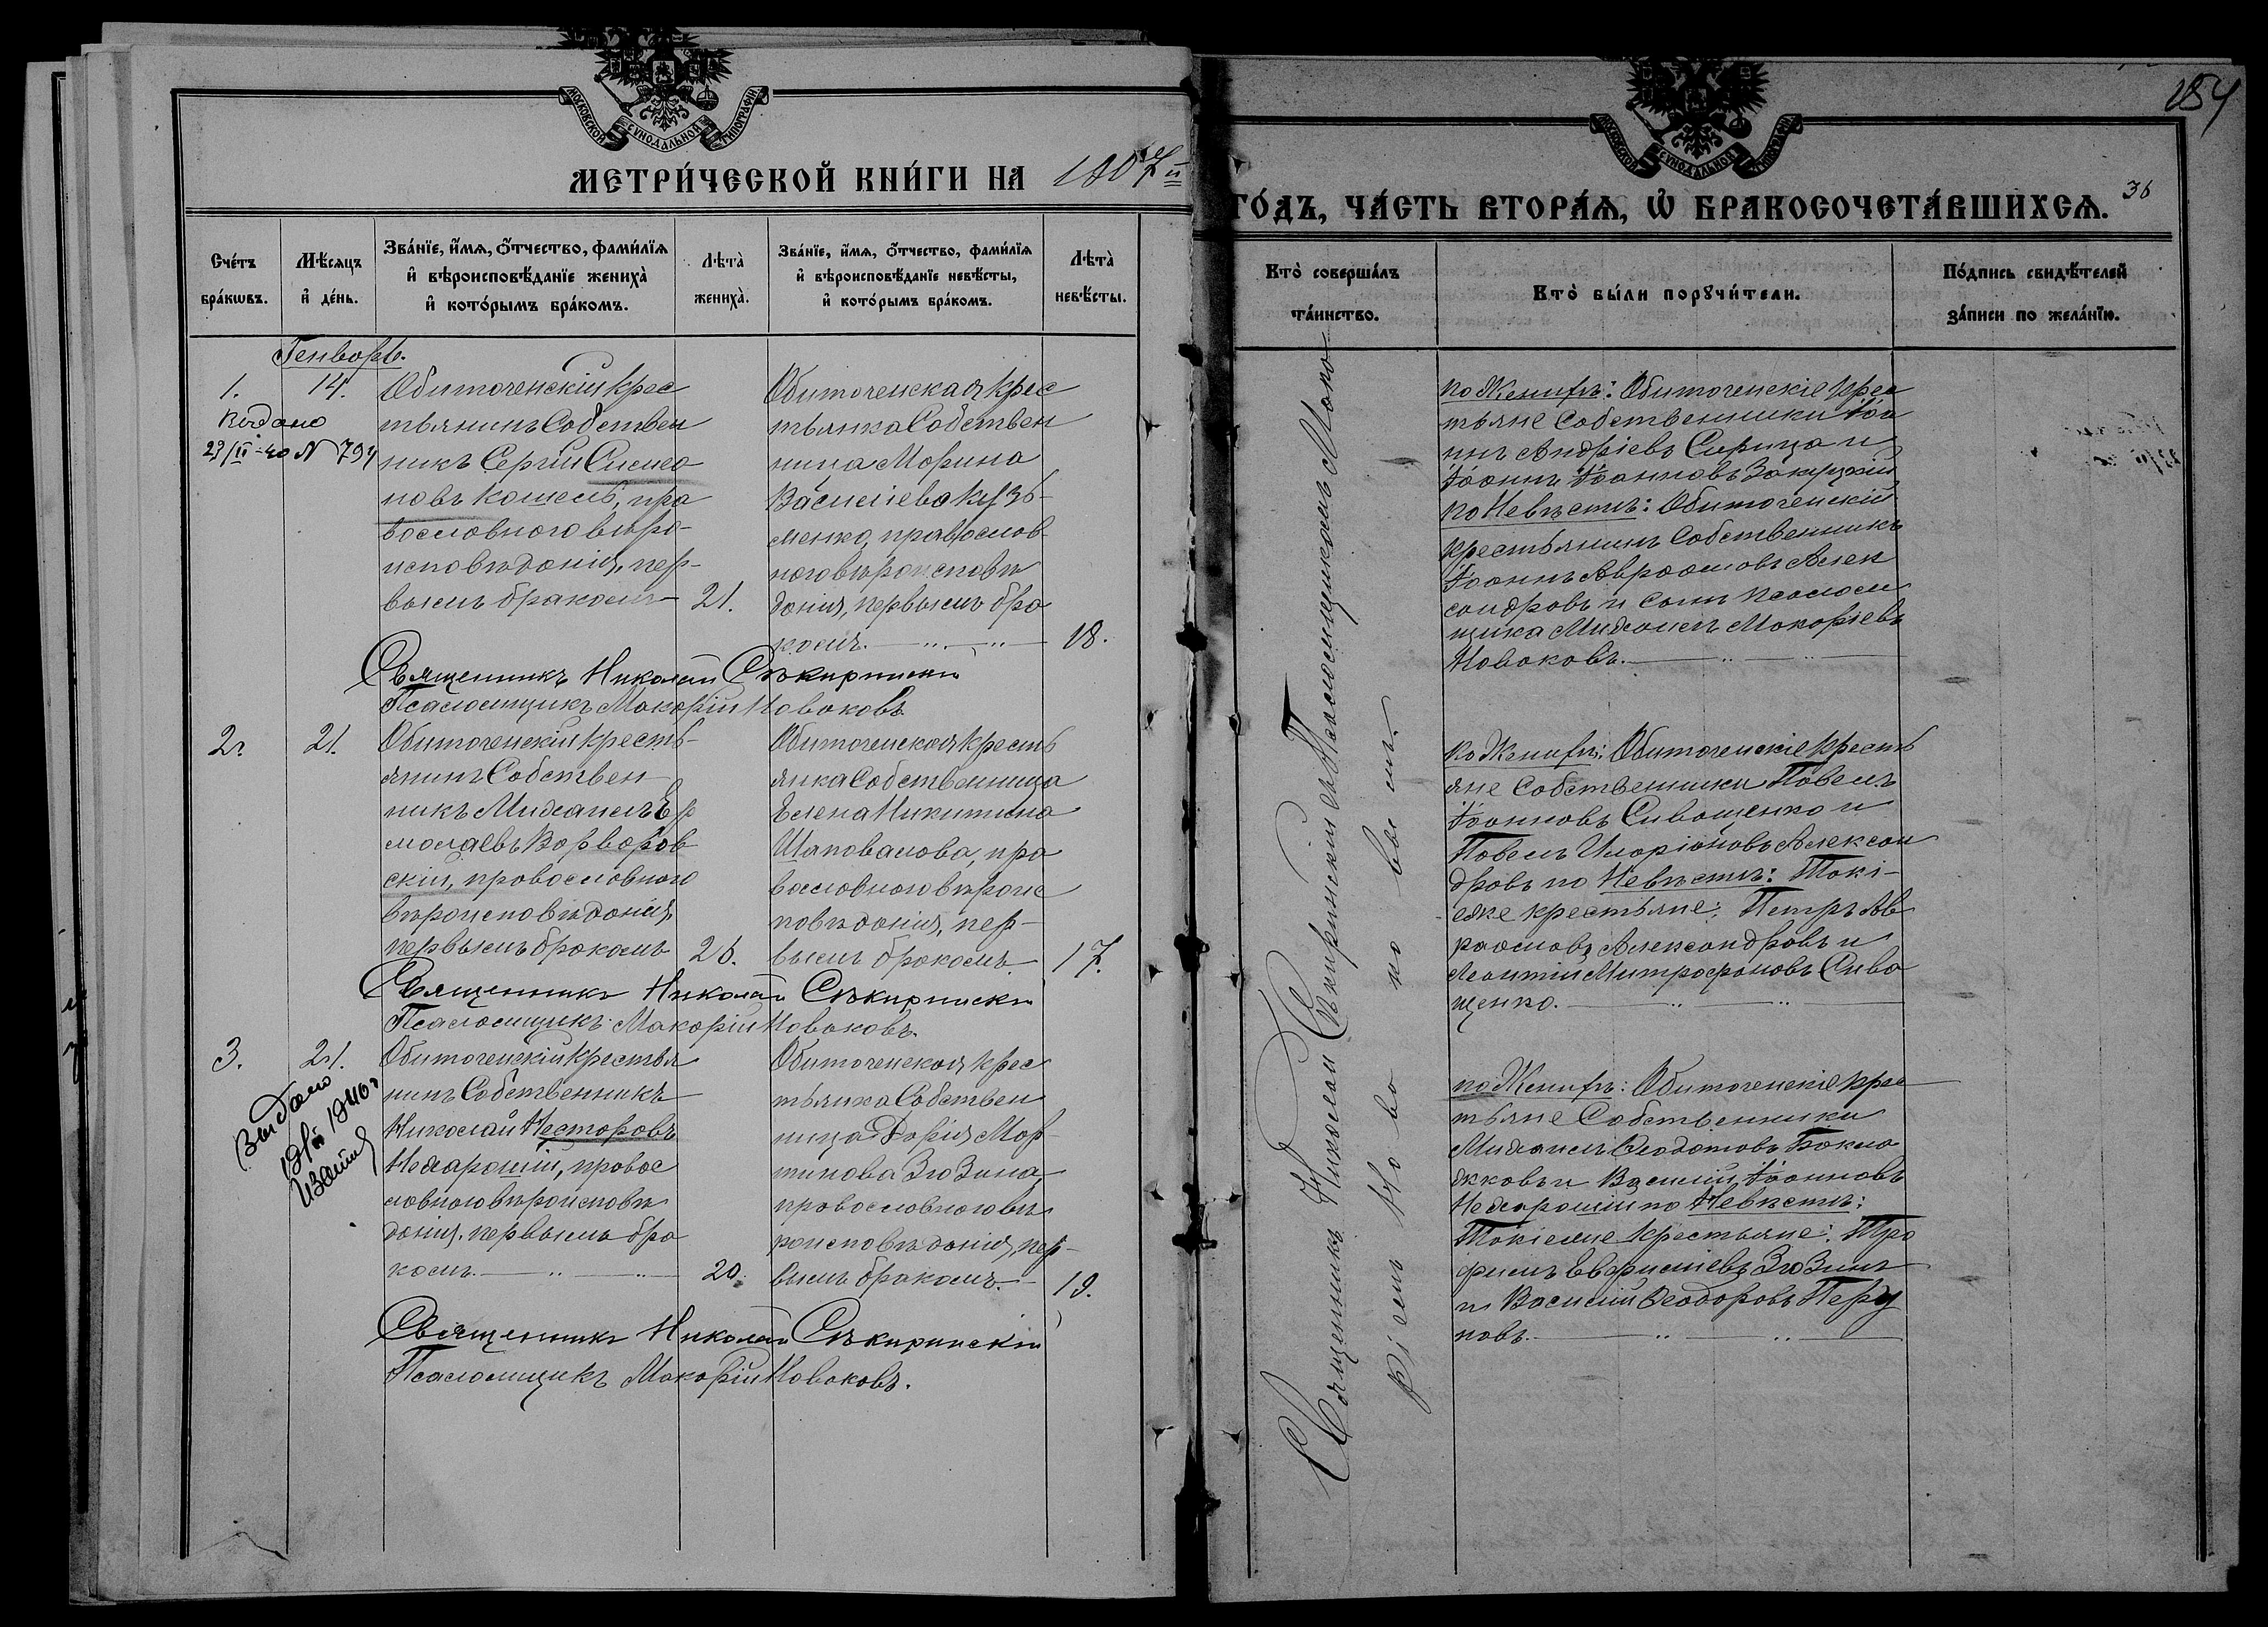 МОСКОВСКОЙ СѴНОДАЛЬНОЙ ТИПОГРАФІИ
МЕТРИ́ЧЕСКОЙ КНИ́ГИ НА 1907й
Сче́тъ бра́кωвъ.
Мѣ́сяцъ и҆ де́нь.
Зва́нїе, и҆́мѧ, ѻ҆́тчество, фами́лїѧ
и҆ вѣроисповѣ́данїе жениха̀
и҆ кото́рымъ бра́комъ.
Лѣта̀ жениха̀.
Зва́нїе, и҆́мѧ, ѻ҆́тчество, фами́лїѧ
и҆ вѣроисповѣ́данїе невѣ́сты,
и҆ кото́рымъ бра́комъ.
Лѣта̀ невѣ́сты.
Генварь.
1.
14.
Выдано
23/II-40 N 794
Обиточенскій крес
тьянинъ Собствен
никъ Сергій Симео
новъ Кошель, пра
вославнаго вѣро-
исповѣданія, пер-
вымъ бракомъ
21.
Обиточенская крес
тьянка Собствен
ница Марина
Васильева Кузь-
менко, православ-
наго вѣроисповѣ
данія, первымъ бра
комъ.
18.
Священникъ Николай Сѣкиринскій
Псаломщикъ Макарій Новаковъ.
2.
21.
Обиточенскій кресть-
янинъ Собствен
никъ Михаилъ Ер
молаевъ Варваров
скій, православнаго
вѣроисповѣданія,
первымъ бракомъ
26.
Обиточенская кресть
янка Собственница
Елена Никитина
Шаповалова, пра
вославнаго вѣроис
повѣданія, пер-
вымъ бракомъ
17.
Священникъ Николай Сѣкиринскій
Псаломщикъ Макарій Новаковъ.
3.
21.
Выдано
1940г
Обиточенскій крестья
нинъ Собственникъ
Николай Несторовъ
Нехарошій, правос
лавнаго вѣроисповѣ
данія, первымъ бра
комъ.
20.
Обиточенская крес
тьянка Собствен
ница Дарія Мар-
тинова Зюзина,
православнаго вѣ
роисповѣданія, пер-
вымъ бракомъ.
19.
Священникъ Николай Сѣкиринскій
Псаломщикъ Макарій Новаковъ.
154
36
МОСКОВСКОЙ СѴНОДАЛЬНОЙ ТИПОГРАФІИ
ГО́ДЪ, ЧА́СТЬ ВТОРА́Ѧ, Ѡ҆ БРАКОСОЧЕТА́ВШИХСѦ.
Кто̀ соверша́лъ та́инство.
Кто̀ бы́ли порꙋчи́тели.
По́дпись свидѣ́телей за́писи по жела́нїю.
Священникъ Николай Сѣкиринскій съ Псаломщикомъ Мака-
ріемъ Новаковымъ.
по Женихѣ: Обиточенскіе крес
тьяне Собственники Іоа
ннъ Андріевъ Сирица и
Іоаннъ Іоанновъ Закуцкій
по Невѣстѣ: Обиточенскій
крестьянинъ Собственникъ
Іоаннъ Авраамовъ Алек
сандровъ и сынъ Псалом
щика Михаилъ Макаріевъ
Новаковъ.
по Женихѣ: Обиточенскіе кресть
яне Собственники Павелъ
Іоанновъ Сиващенко и
Павелъ Иларіоновъ Алексан
дровъ по Невѣстѣ: Такі-
еже крестьяне: Петръ Ав
раамовъ Александровъ и
Леонтій Митрофановъ Сива
щенко.
по Женихѣ: Обиточенскіе крес
тьяне Собственники
Михаилъ Ѳеодотовъ Бакла
жковъ и Василій Іоанновъ
Нехарошій по Невѣстѣ:
Такіеже крестьяне: Тро
фимъ Евфиміевъ Зюзинъ
и Василій Ѳеодоровъ Перу
новъ.